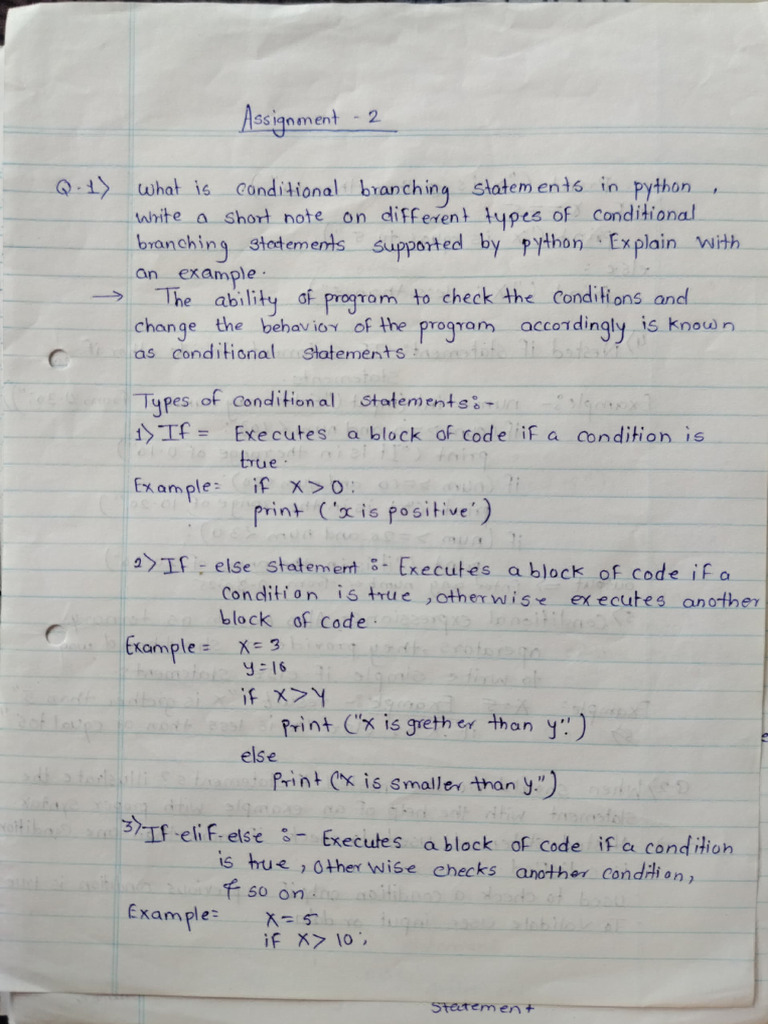 Assignment - 2
Q.1) What is conditional branching statements in python,
write a short note on different types of conditional
branching statements supported by python. Explain with
an example.
→ The ability of program to check the conditions and
change the behavior of the program accordingly is known
as conditional statements.
Types of conditional statements:-
1) If = Executes a block of code if a condition is
true.
Example= if x>0:
print ('x is positive')
2) If - else statement :- Executes a block of code if a
condition is true, otherwise executes another
block of code.
Example = x=3
y=16
if x>y
print ("x is grether than y".")
else
print ("x is smaller than y.")
3) If-elif-else :- Executes a block of code if a condition
is true, otherwise checks another condition,
& so on.
Example= x=5
if x> 10:
Statement